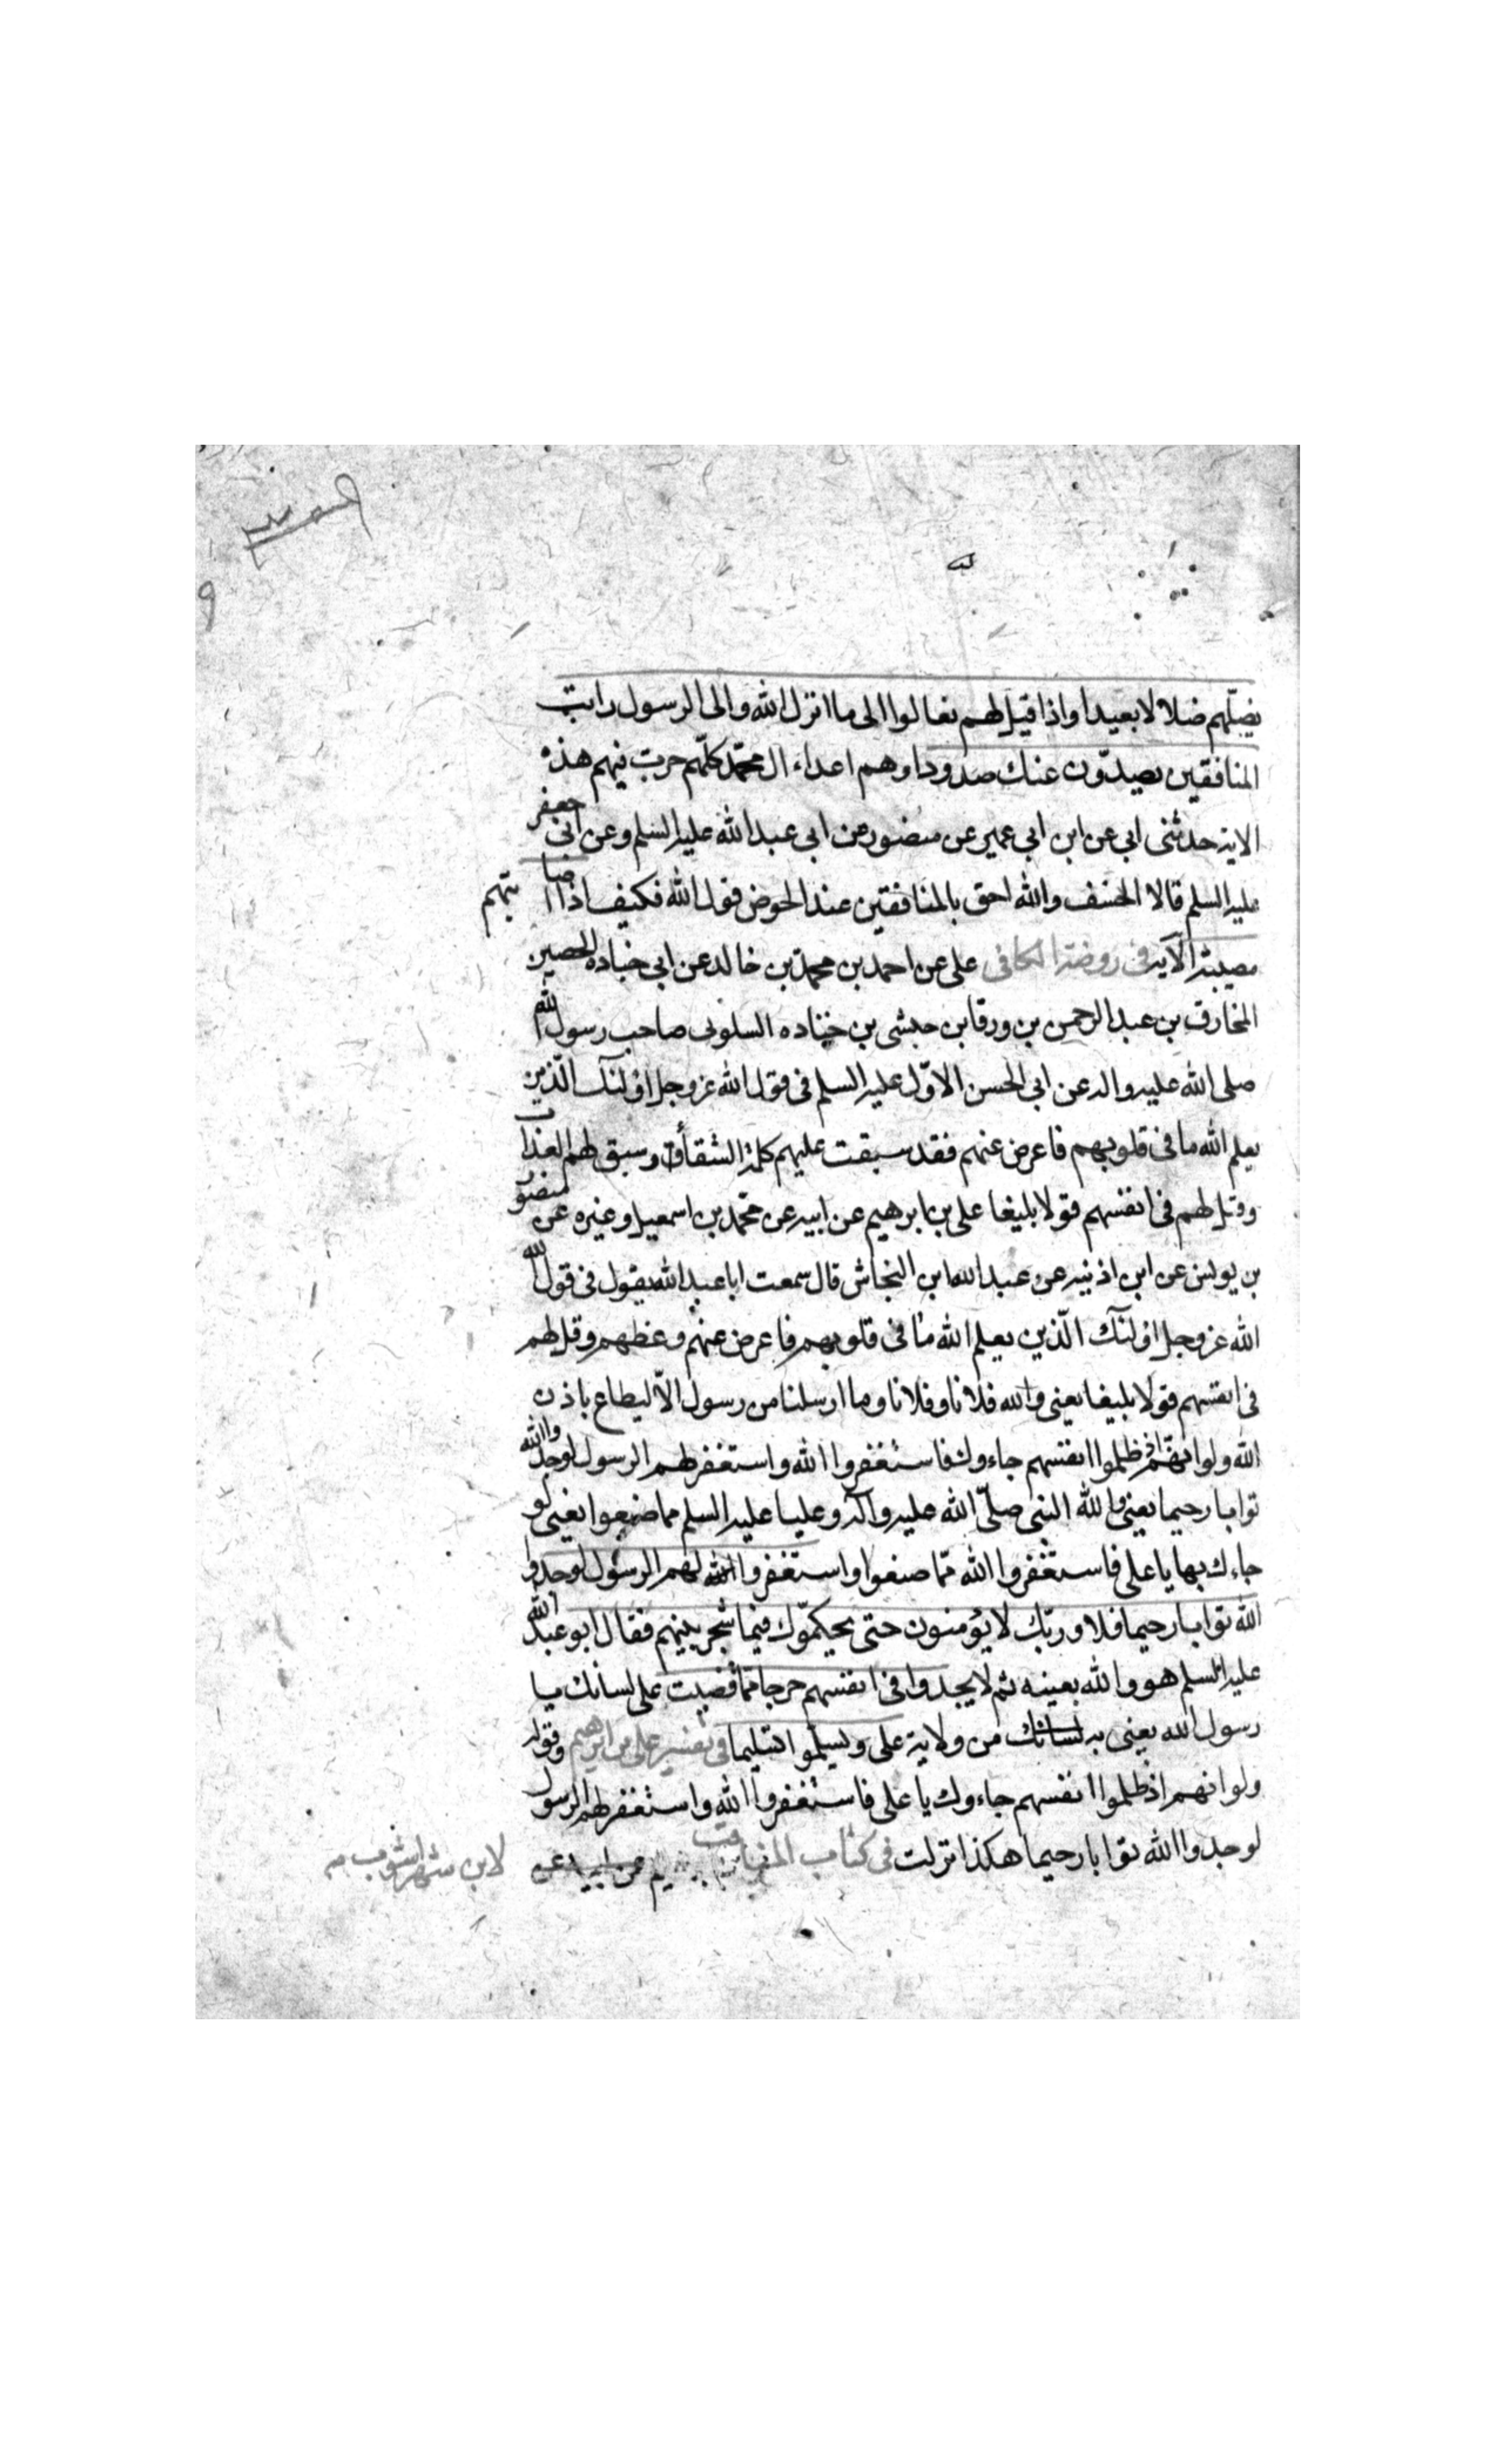 يضلّهم ضلالا بعيدا واذا قيل لهم تعالوا الى ما انزل الله والى الرسول رايت
المنافقين يصدّون عنك صدودا وهم اعداء ال محمّد كلّهم جرت فيهم هذه
الاية حدثنى ابى عن ابن ابى عمير عن منصور عن ابى عبد الله عليه السلم وعن ابى جعفر
عليه السلم قالا الخسف والله احق بالمنافقين عند الحوض قول الله فكيف اذا اصابتهم
مصيبة الآية فى روضة الكافى على عن احمد بن محمد بن خالد عن ابى جناده الحصين
المخارق بن عبد الرحمن بن ورقا بن حبشى بن جناده السلولى صاحب رسول الله
صلى الله عليه واله عن ابى الحسن الاوّل عليه السلم فى قول الله عز وجل اولئك الّذين
يعلم الله ما فى قلوبهم فاعرض عنهم فقد سبقت عليهم كلمة الشقاء وسبق لهم العذاب
وقل لهم فى انفسهم قولا بليغا على بن ابرهيم عن ابيه عن محمّد بن اسمعيل وغيره عن منصور
بن يونس عن ابن اذنيه عن عبد الله ابن النجاشى قال سمعت ابا عبد الله يقول فى قول الله
الله عز وجل اولئك الّذين يعلم الله ما فى قلوبهم فاعرض عنهم وعظهم وقل لهم
فى انفسهم قولا بليغا يعنى والله فلانا وفلانا وما ارسلنا من رسول الاّ ليطاع باذن
الله ولو انهم اذ ظلموا انفسهم جاءوك فاستغفروا الله واستغفر لهم الرسول لوجدوا الله
توابا رحيما يعنى والله النبى صلّى الله عليه وآله وعليا عليه السلم مما صنعوا يعنى لو
جاءك بها يا على فاستغفروا الله ممّا صنعوا واستغفروا الله لهم الرسول لوجدوا
الله توابا رحيما فلا وربّك لا يؤمنون حتى يحكمّوك فيما شجر بينهم فقال ابو عبد الله
عليه السلم هو والله بعينه ثم لا يجدوا فى انفسهم حرجا ممّا قضيت على لسانك يا
رسول الله يعنى به لسانك من ولاية على ويسلّموا تسليما فى تفسير على بن ابرهيم وقوله
ولو انهم اذ ظلموا انفسهم جاءوك يا على فاستغفروا الله واستغفر لهم الرسول
لوجدوا الله توابا رحيما هكذا نزلت فى كتاب المناقب عن ابيه عن لابن شهراشوب